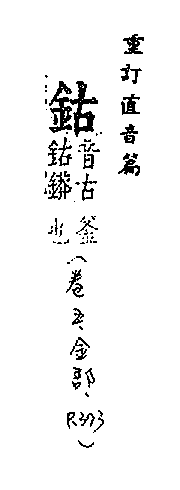 重訂直音篇
鈷
音古釜
鈷鏻也
(卷五、金部、
P.373)